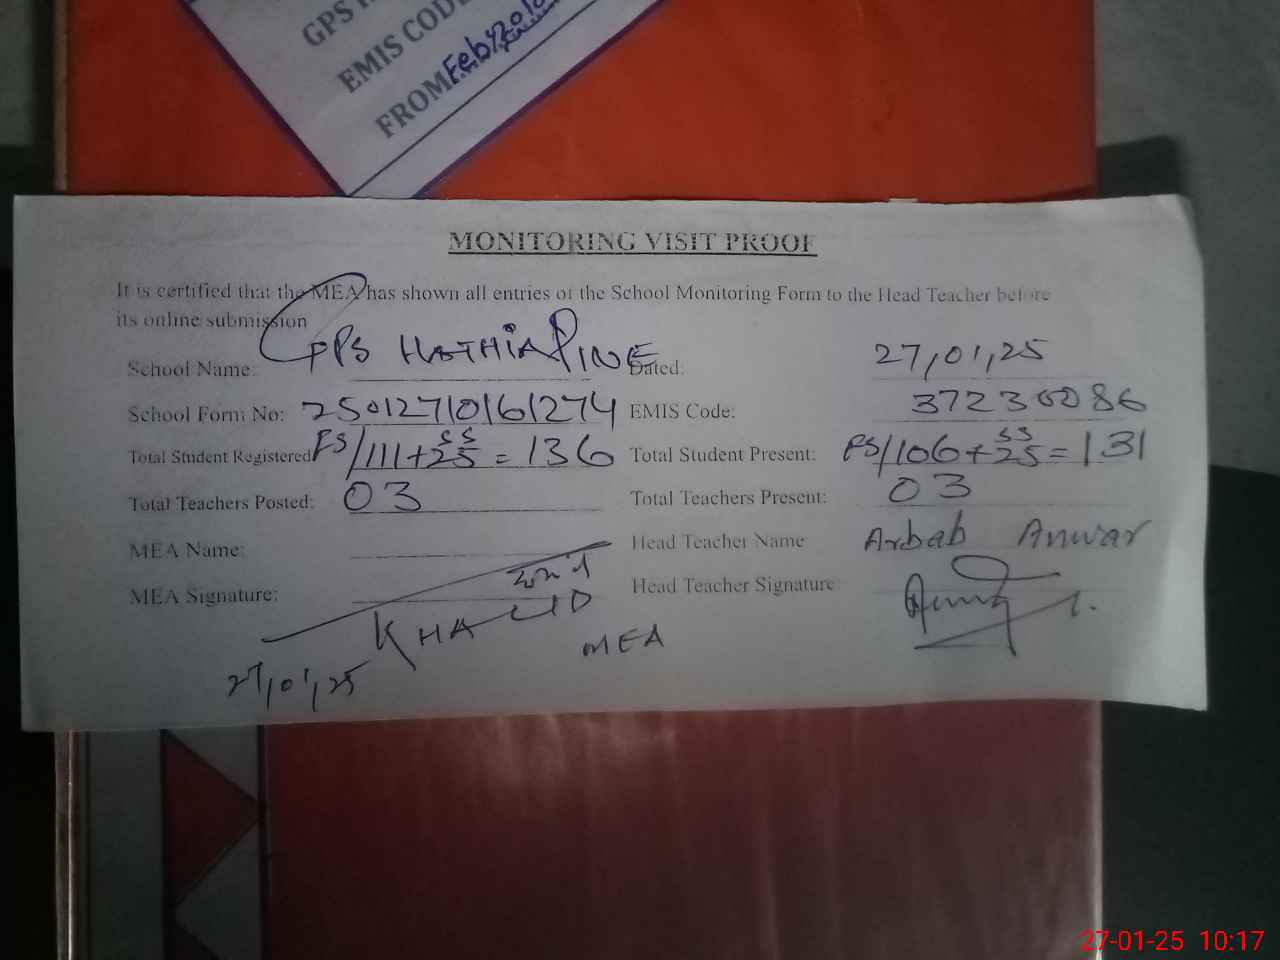 GPS
EMIS CODE
FROM Feb
MONITORING VISIT PROOF
It is certified that the MEA has shown all entries of the School Monitoring Form to the Head Teacher before
its online submission
School Name: GPS HATHIA PINE Dated: 27,01,25
School Form No: 25012710161274 EMIS Code: 37230086
Total Student Registered FS/111+SS/25=136 Total Student Present: FS/106+SS/25=131
Total Teachers Posted: 03 Total Teachers Present: 03
MEA Name: Head Teacher Name Arbab Anwar
MEA Signature: Head Teacher Signature:
KHALID
MEA
27,01,25
27-01-25 10:17